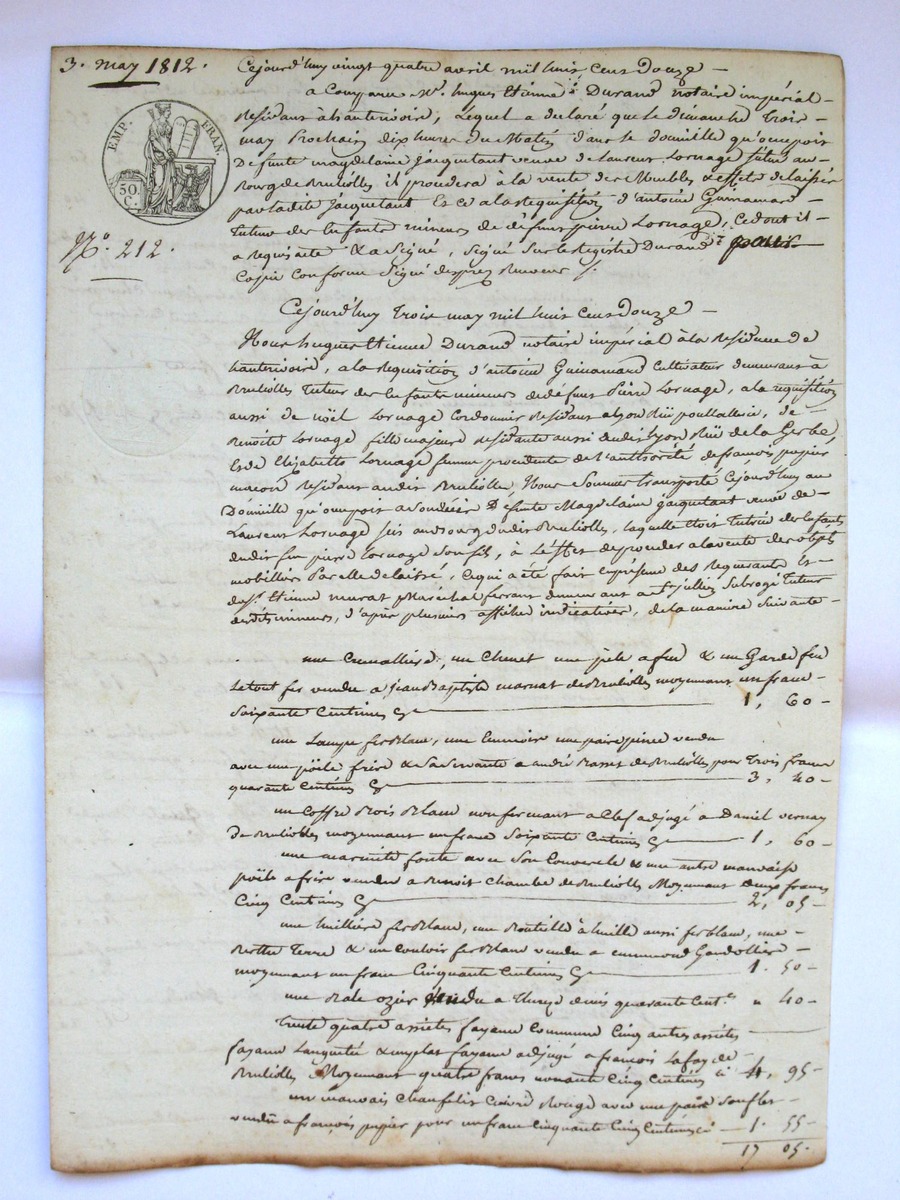 3. may 1812.
EMP. FRAN.
50 C.
N°. 212.
Cejourd'huy vingt quatre avril mil huit cens Douze —
a Comparu M.e hugues Etienne Durand notaire impérial
Residant à hauterivoire, Lequel a declaré que le dimanche Trois
may Prochain dix heures Du Matin dans le domicille qu'occupoit
Defunte magdelaine Jacquetant veuve de Laurent Lornage situé au
Bourg de Brulioles il procedera à la vente des Meubles & effets delaissés
par ladite Jacquetant Et ce a la Requisition d'antoine Guinamard
Tuteur des Enfants mineurs de défunt pierre Lornage, Ce dont il
a requis acte & a signé, signé sur le registre Durand
Copie Conforme signé despres Receveur ·/.
Cejourd'huy Trois may mil huit cens Douze —
Nous hugues Etienne Durand notaire impérial à la Residence de
hauterivoire, a la requisition d'antoine Guinamard Cultivateur demeurant à
Brulioles Tuteur des Enfants mineurs de défunt Pierre Lornage, a la requisition
aussi de noël Lornage Cordonnier Residant a Lyon Rüe poullallerie, de
Benoite Lornage fille majeure Residante aussi audit Lyon Rüe de la Gerbe,
Et de Elizabette Lornage femme procedente de l'authorité de françois papier
maçon Residant audit Brulioles, Nous Sommes transporté Cejourd'huy au
Domicille qu'occupoit a son décés Defunte Magdelaine Jacquetant veuve de
Laurent Lornage sis au Bourg dudit Brulioles, laquelle étoit Tutrice des Enfants
dudit feu pierre Lornage son fils, à L'effet de proceder a la vente des objets
mobilliers Par elle delaissé, Ce qui a été fait en présence des Requerants Et
de s.r Etienne murat Maréchal ferrant demeurant a S.t jullien Subrogé Tuteur
desdits mineurs, d'après plusieurs affiches indicatives, de la maniere Suivante
une Cremalliere, un Chenet une pêle a feu & un Garde feu
Le tout fer vendu a Jean Baptiste marnat de Brulioles moyennant un franc
Soixante Centimes Cy — 1, 60 —
une Lampe fer Blanc, une une paire pince vendu
avec une pöele frire & sa servante a andré Basset de Brulioles pour Trois francs
quarante Centimes Cy — 3, 40 —
un Coffre Bois Blanc non fermant a Clef adjugé a Daniel vernay
de Brulioles moyennant un franc Soixante Centimes Cy — 1, 60 —
une marmite fonte avec son Couvercle & une autre mauvaise
pöele a frire vendu a Benoit Chambe de Brulioles Moyennant deux francs
Cinq Centimes Cy — 2, 05 —
une huilliere fer Blanc, une Bouteille à huille aussi fer blanc, une
Terre & un Couloir fer Blanc vendu a
moyennant un franc Cinquante Centimes Cy — 1. 50 —
une ozier vendu a quarante Cent.s " 40 —
Trente quatre assietes fayance Commune Cinq autres assietes
fayance & un plat fayance adjugé a françois Lafay de
Brulioles Moyennant quatre francs nonante Cinq Centimes ci 4, 95 —
un mauvais Chaufelit Cuivre Rouge avec une paire Soufflet
vendu a françois papier pour un franc Cinquante Cinq Centimes ci — 1. 55 —
17 05.